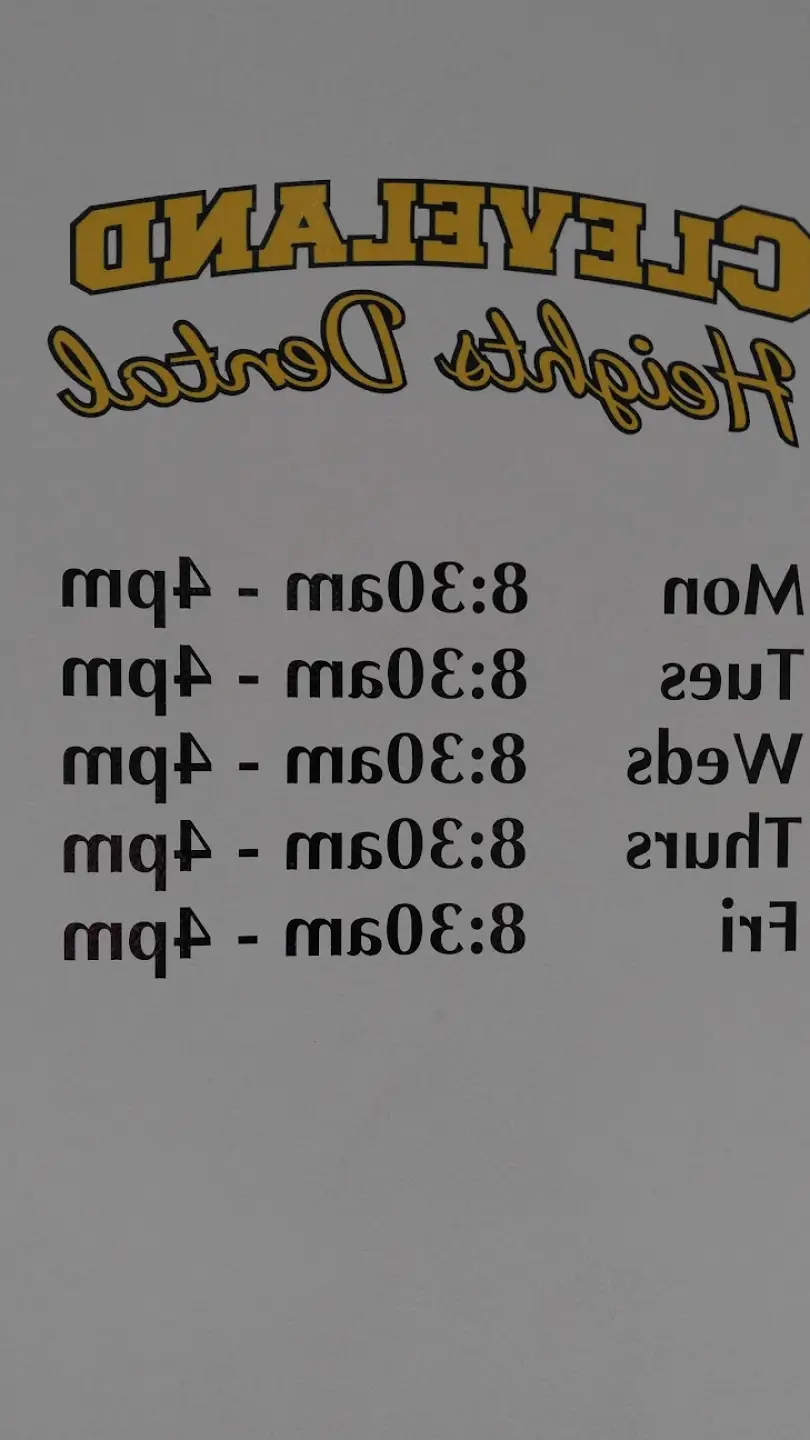 CLEVELAND
Heights Dental
Mon 8:30am - 4pm
Tues 8:30am - 4pm
Weds 8:30am - 4pm
Thurs 8:30am - 4pm
Fri 8:30am - 4pm